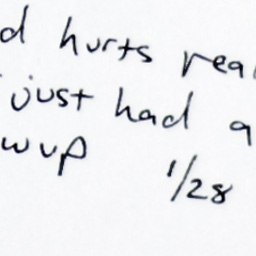 d hurts rea
just had a
wup 1/28